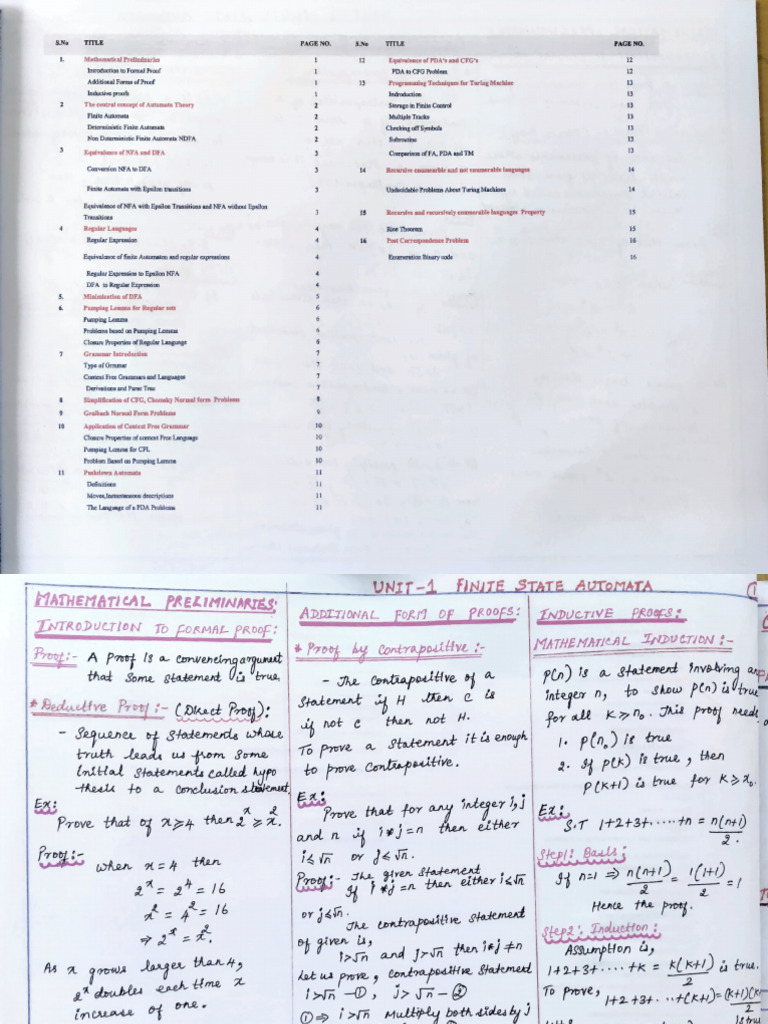 S.No TITLE PAGE NO.
1. Mathematical Preliminaries 1
Introduction to Formal Proof 1
Additional Forms of Proof 1
Inductive proofs 1
2 The central concept of Automata Theory 2
Finite Automata 2
Deterministic Finite Automata 2
Non Deterministic Finite Automata NDFA 2
3 Equivalence of NFA and DFA 3
Conversion NFA to DFA 3
Finite Automata with Epsilon transitions 3
Equivalence of NFA with Epsilon Transitions and NFA without Epsilon
Transitions 3
4 Regular Languages 4
Regular Expression 4
Equivalence of finite Automaton and regular expressions 4
Regular Expression to Epsilon NFA 4
DFA to Regular Expression 4
5. Minimization of DFA 5
6. Pumping Lemma for Regular sets 6
Pumping Lemma 6
Problems based on Pumping Lemma 6
Closure Properties of Regular Language 6
7 Grammar Introduction 7
Type of Grammar 7
Context Free Grammars and Languages 7
Derivations and Parse Tree 7
8 Simplification of CFG, Chomsky Normal form Problems 8
9 Greiback Normal Form Problems 9
10 Application of Context Free Grammar 10
Closure Properties of context Free Language 10
Pumping Lemma for CFL 10
Problem Based on Pumping Lemma 10
11 Pushdown Automata 11
Definitions 11
Moves,Instantaneous descriptions 11
The Language of a PDA Problems 11
S.No TITLE PAGE NO.
12 Equivalence of PDA's and CFG's 12
PDA to CFG Problem 12
13 Programming Techniques for Turing Machine 13
Introduction 13
Storage in Finite Control 13
Multiple Tracks 13
Checking off Symbols 13
Subroutine 13
Comparison of FA, PDA and TM 13
14 Recursive enumerable and not enumerable languages 14
Undecidable Problems About Turing Machines 14
15 Recursive and recursively enumerable languages Property 15
Rice Theorem 15
16 Post Correspondence Problem 16
Enumeration Binary code 16
UNIT-1 FINITE STATE AUTOMATA
MATHEMATICAL PRELIMINARIES:
INTRODUCTION TO FORMAL PROOF:
Proof:- A Proof is a convencing argument
that some statement is true.
* Deductive Proof :- (Direct Proof):
- Sequence of statements whose
truth leads us from some
initial statements called hypo
thesis to a conclusion statement.
Ex:
Prove that of x⩾4 then 2^x ⩾ x^2.
Proof:-
when x = 4 then
2^x = 2^4 = 16
x^2 = 4^2 = 16
⇒ 2^x = x^2.
As x grows larger than 4,
2^x doubles each time x
increase of one.
ADDITIONAL FORM OF PROOFS:
* Proof by Contrapositive :-
- The Contrapositive of a
Statement if H then C is
if not C then not H.
To prove a Statement it is enough
to prove Contrapositive.
Ex:
Prove that for any integer i, j
and n if i*j=n then either
i⩽√n or j⩽√n.
Proof:- The given statement
If i*j=n then either i⩽√n
or j⩽√n.
The contrapositive statement
of given is,
i>√n and j>√n then i*j≠n
Let us prove, Contrapositive Statement
i>√n -①, j>√n -②
① ⇒ i>√n Multiply both sides by j
INDUCTIVE PROOFS:
MATHEMATICAL INDUCTION :-
P(n) is a statement involving an
integer n, to show P(n) is true
for all K⩾n₀. This proof needs
1. P(n₀) is true
2. If P(k) is true, then
P(k+1) is true for K⩾x₀.
Ex:
S.T 1+2+3+.....+n = n(n+1)/2.
Step1: Basis:
If n=1 ⇒ n(n+1)/2 = 1(1+1)/2 = 1
Hence the proof.
Step2: Induction:
Assumption is,
1+2+3+.....+k = k(k+1)/2 is true.
To prove,
1+2+3+...+(k+1)=(k+1)(k+